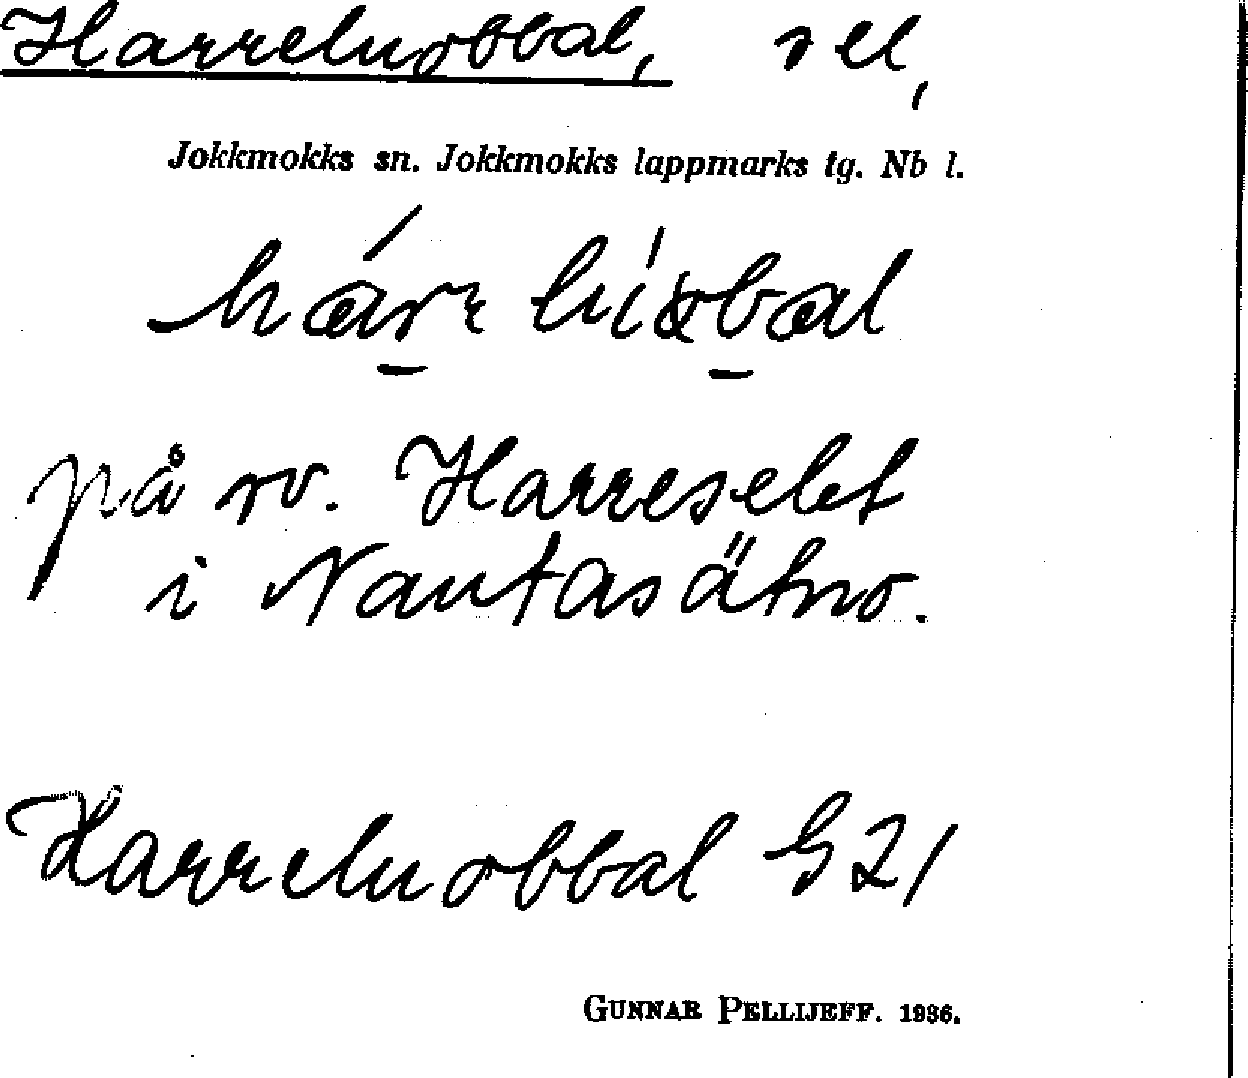 Harreluobbal, sel,
Jokkmokks sn. Jokkmokks lappmarks tg. Nb l.
på rv. Harreselet
i Nautasätno.
Harreluobbal G21
GUNNAR PELLIJEFF. 1936.